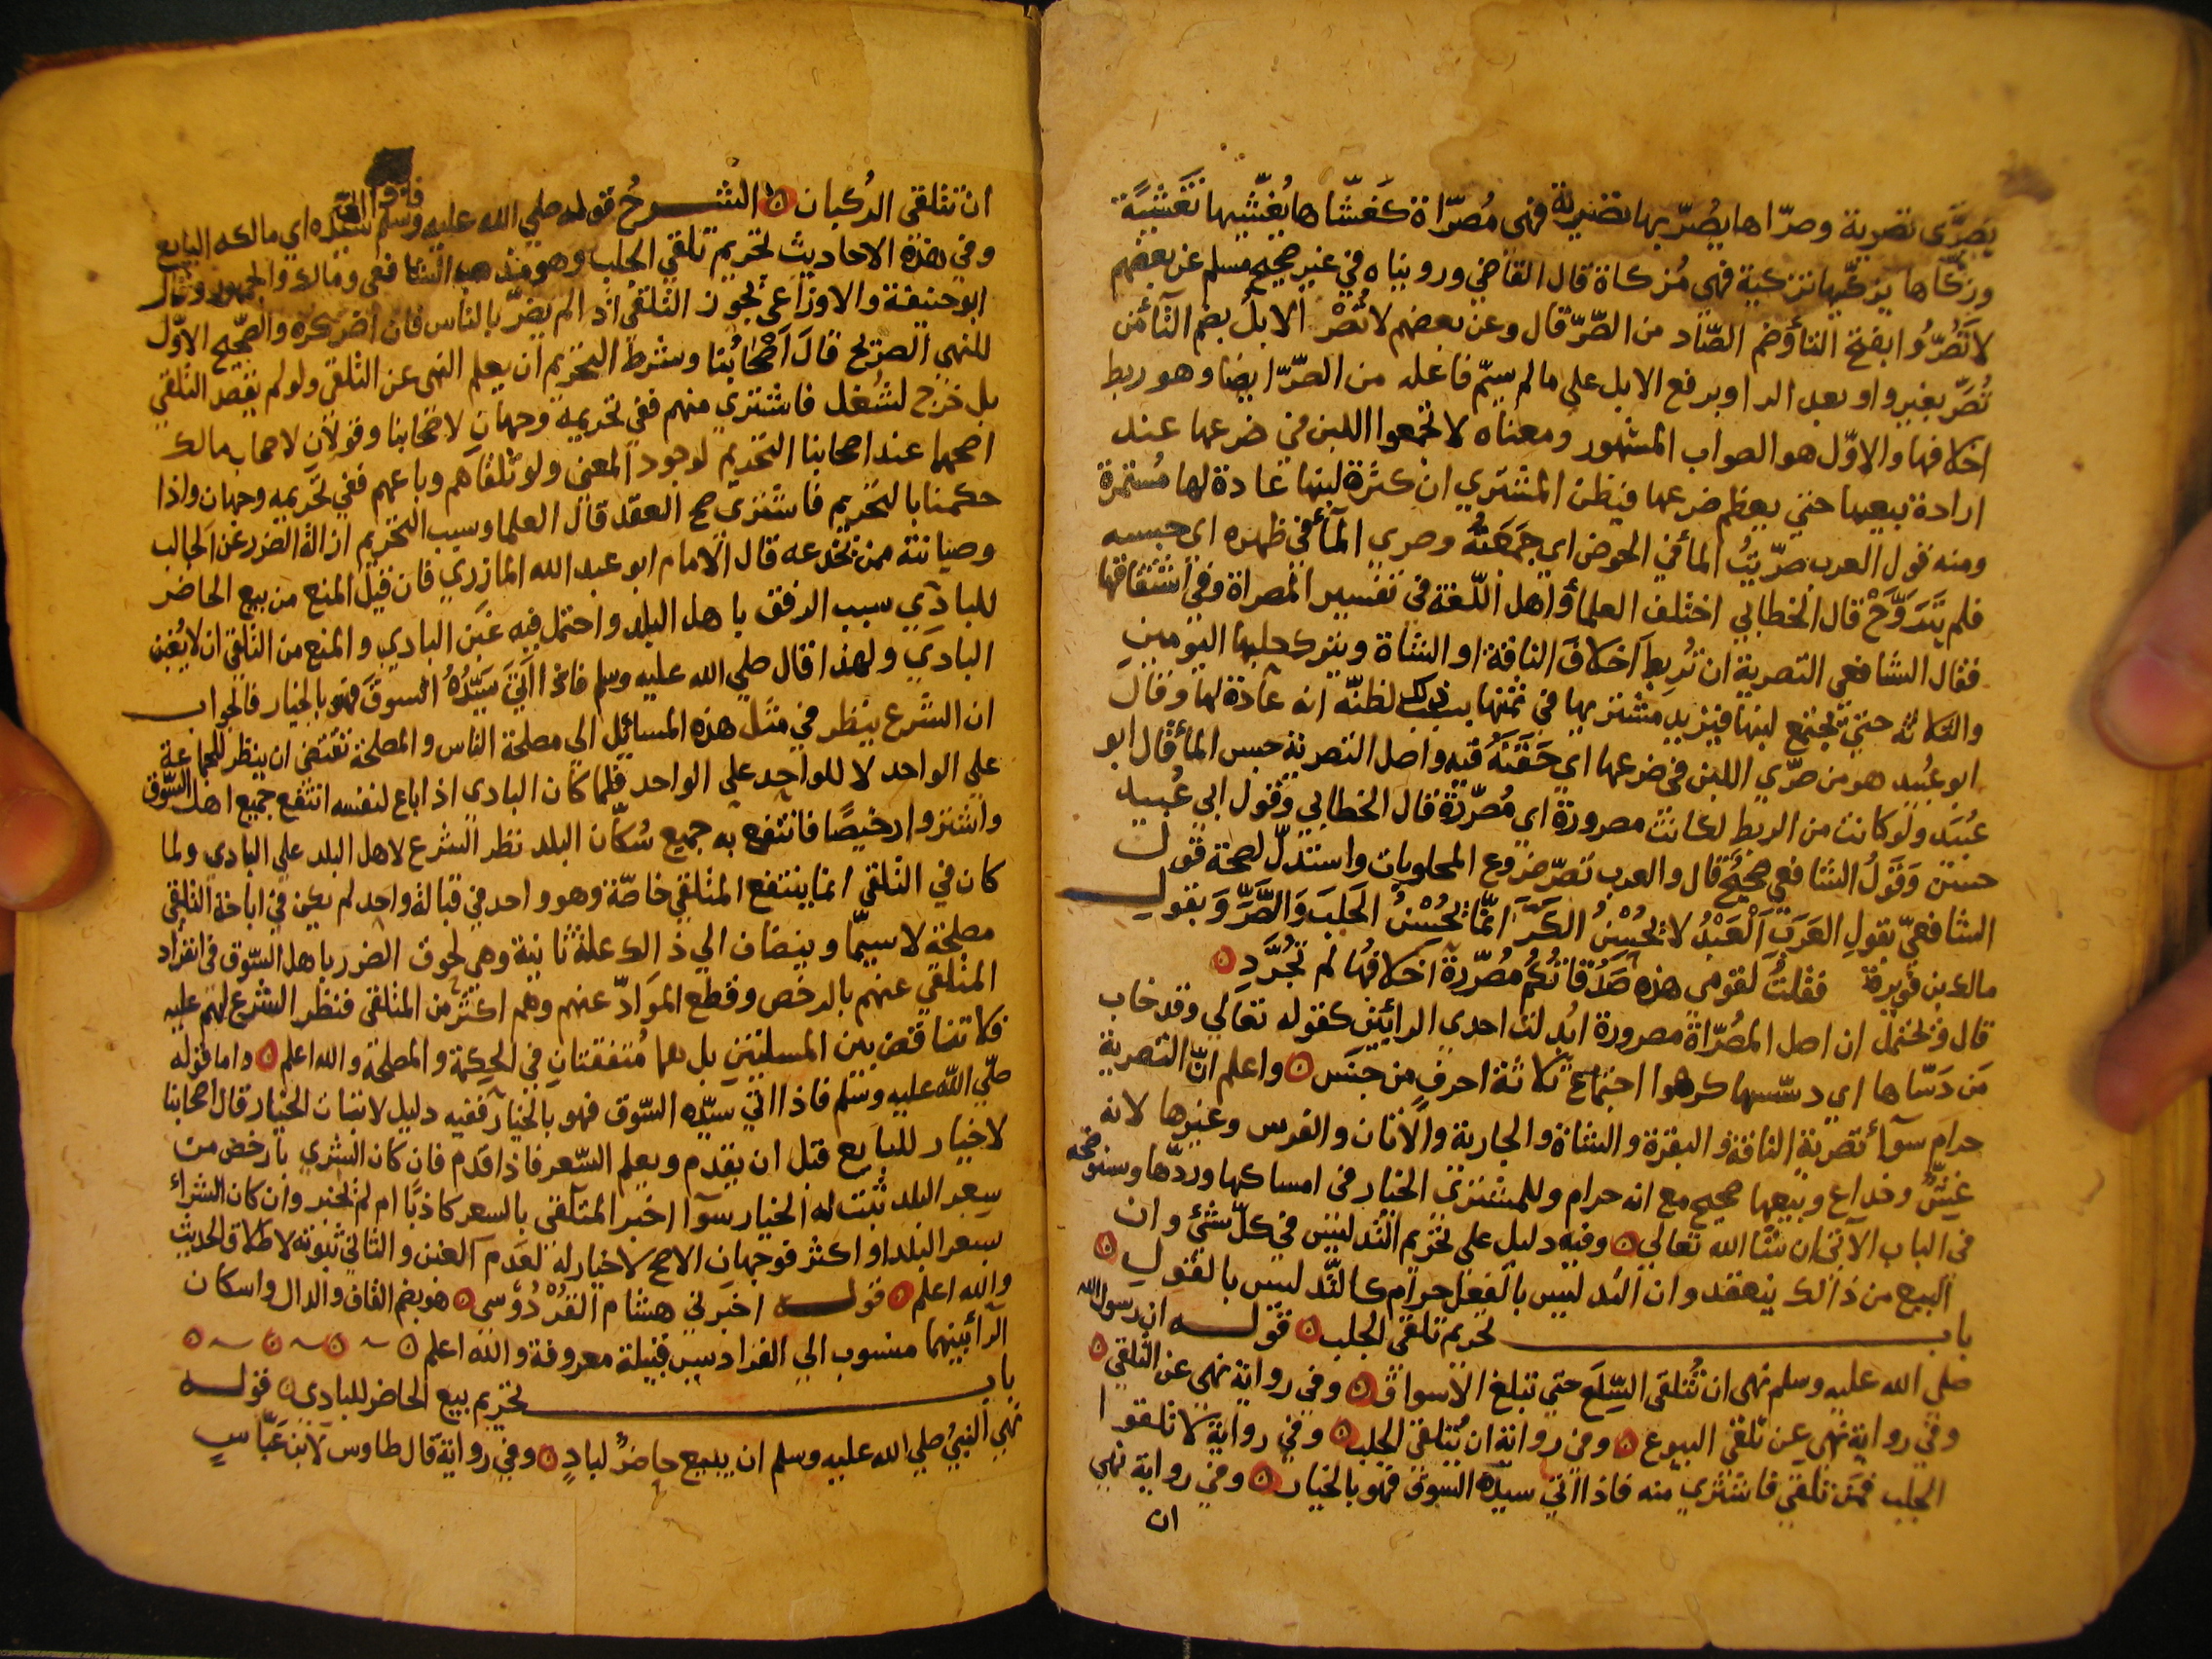 يصرّى تصرية وصرّاها يصرّيها تصرية فهى مُصرّاة كغشّاها يُغشّيها تَغشيَةً
وزكّاها يزكّيها تزكية فهى مُزكاة قال القاضى ورويناه في غير صحيح مسلم عن بعضهم
لا تَصُرُّوا بفتح التاء وضم الصّاد من الصّرّ قال وعن بعضهم لا تُصَرُّ الابلُ بضم التاء من
تُصَرّ بغير واو بعد الرا وبرفع الابل على ما لم يسمّ فاعله من الصّرّ ايضا وهو ربط
اخلافها والاوّل هو الصواب المشهور ومعناه لا تجمعوا اللبن في ضرعها عند
ارادة بيعها حتي يعظم ضرعها فيظن المشتري ان كثرة لبنها عادة لها مُستمرة
ومنه قول العرب صرّيتُ الماء في الحوض اي جَمَعْتُهُ وصرى الماء في ظهره اى حبسه
فلم يَتَزَوَّجْ قال الخطابي اختلف العلماء واهل اللّغة في تفسير المصراة وفي اشتقاقها
فقال الشافعي التصرية ان تُربط اخلاف الناقة او الشاة ويترك حلبها اليومين
والثلاثة حتي تجتمع لبنها فيزيد مشتريها في ثمنها بسبب ذلك لظنّه انه عادة لها وقال
ابو عُبيد هو من صَرّي اللبن في ضرعها اي حَقَنَهُ فيه واصل التصرية حبس الماء قال ابو
عُبيَد ولو كانت من الربط لكانت مصرورة اي مُصرّرة قال الخطابي وقول ابى عُبيد
حسن وَقَوْلُ الشافعي صحيحٌ قال والعرب تصرّ ضروع المحلوبات واستدلّ لصحة قول
الشافعيّ بقولِ العَرَب اَلْعَبْدُ لا يُحْسِنُ الكَرَّ اِنَّما يُحْسِنُ الحَلَبَ وَالصَّرَّ وَبقول
مالك بن نويرة فقلتُ لقومي هذه صَدَقَاتُكُمُ مُصَرَّرَةً اخلافُها لم تُجَرَّدِ ۞
قال ويحتمل ان اصل المُصَرّاة مصرورة ابُدلت احدي الرائين كقوله تعالي وقد خاب
مَن دَسّاها اي دسّسها كرهوا اجتماع ثلاثة احرفٍ من جنس ۞ واعلم انّ التصرية
حرام سواء تصرية الناقة والبقرة والشاة والجارية والاتان والفرس وغيرها لانه
غِشٌّ وخداع وبيعها صحيح مع انه حرام وللمشترى الخيار فى امساكها وردّها وسنوضحه
فى الباب الآتى ان شا الله تعالي ۞ وفيه دليل على تحريم التدليس في كلّ شئ وان
البيع من ذالك ينعقد وان التدليس بالفعل حرام كالتَّدليس بالقول ۞
باب تحريم تلقى الجلب ۞ قوله ان رسول الله
صلى الله عليه وسلم نهى ان تُتلقى السِّلَع حتي تبلغ الاسواق ۞ وفي رواية نهى عن التلقي ۞
وفي رواية نهى عن تلقى البيوع ۞ وفي رواية ان يُتلقى الجلب ۞ وفي رواية لا تلقوا
الجلب فمن تلقى فاشترى منه فاذا اتي سيدُه السوق فهو بالخيار ۞ وفي رواية نهي
ان
ان تتلقى الرُكبان ۞ الشرحُ قوله صلي الله عليه وسلم فاذا اتى سيّده اي مالكه البايع
وفي هذه الاحاديث تحريم تلقي الجلب وهو مذهب الشافعي ومالك والجمهور وقال
ابو حنيفة والاوزاعي يجوز التلقى اذا لم يضرّ بالناس فان اضرّ كره والصّحيح الاوّل
للنهي الصريح قال اَصْحابُنا وشرط التحريم ان يعلم النهى عن التلقى ولو لم يقصد التلقي
بل خرج لشُغل فاشترى منهم ففي تحريمه وجهان لاصحابنا وقولان لاصحاب مالك
اصحهما عند اصحابنا التحريم لوجود المعنى ولو تلقاهم وباعهم ففي تحريمه وجهان واذا
حكمنا بالتحريم فاشترى صح العقد قال العلما وسبب التحريم ازالة الضرر عن الجالب
وصيانته ممن يخدعه قال الامام ابو عبد الله المازري فان قيل المنع من بيع الحاضر
للبادي سببه الرفق باهل البلد واحتمل فيه غبن البادي والمنع من التلقي ان لا يُغبن
البادي ولهذا قال صلي الله عليه وسلم فاذا اتي سَيّدُهُ السوقَ فهو بالخيار فالجواب
ان الشرع ينظر في مثل هذه المسائل الي مصلحة الناس والمصلحة تقتضى ان ينظر للجماعة
على الواحد لا للواحد على الواحد فلما كان البادي اذا باع لنفسه انتفع جميع اهل السّوق
واشتروا رخيصًا فانتفع به جميع سُكّان البلد نظر الشرع لاهل البلد علي البادي ولما
كان في التلقي انما ينتفع المتلقي خاصّة وهو واحد في قبالة واحد لم يكن في اباحة التلقي
مصلحة لا سيمّا وينضاف الي ذالك علة ثانية وهي لحوق الضرر باهل السّوق فى انفراد
المتلقي عنهم بالرخص وقطع الموادّ عنهم وهم اكثر من المتلقى فنظر الشرع لهم عليه
فلا تناقض بين المسئلتين بل هما مُتفقتانِ في الحكمة والمصلحة والله اعلم ۞ واما قوله
صلّي الله عليه وسلم فاذا اتي سيّده السّوق فهو بالخيار ففيه دليل لاثبات الخيار قال اصحابنا
لا خيار للبايع قبل ان يقدم ويعلم السّعر فاذا قدم فان كان الشري بارخص من
سعر البلد ثبت له الخيار سوآ اخبر المتلقى بالسعر كاذبًا ام لم يخبر وان كان الشراء
بسعر البلد او اكثر فوجهان الاصح لا خيار له لعَدم الغبن والثاني ثبوته لاطلاق الحديث
والله اعلم ۞ قوله اخبرني هشام القُرْدُوْسي ۞ هو بضم القاف والدال واسكان
الرآ بينهما منسوب الي القراديس قبيلة معروفة والله اعلم ۞ ~ ۞ ~ ۞ ~ ۞
باب تحريم بيع الحاضر للبادى ۞ قوله
نهى النبيُ صلي الله عليه وسلم ان يبيع حاضرٌ لبادٍ ۞ وفي رواية قال طاوس لابن عَبّاسٍ